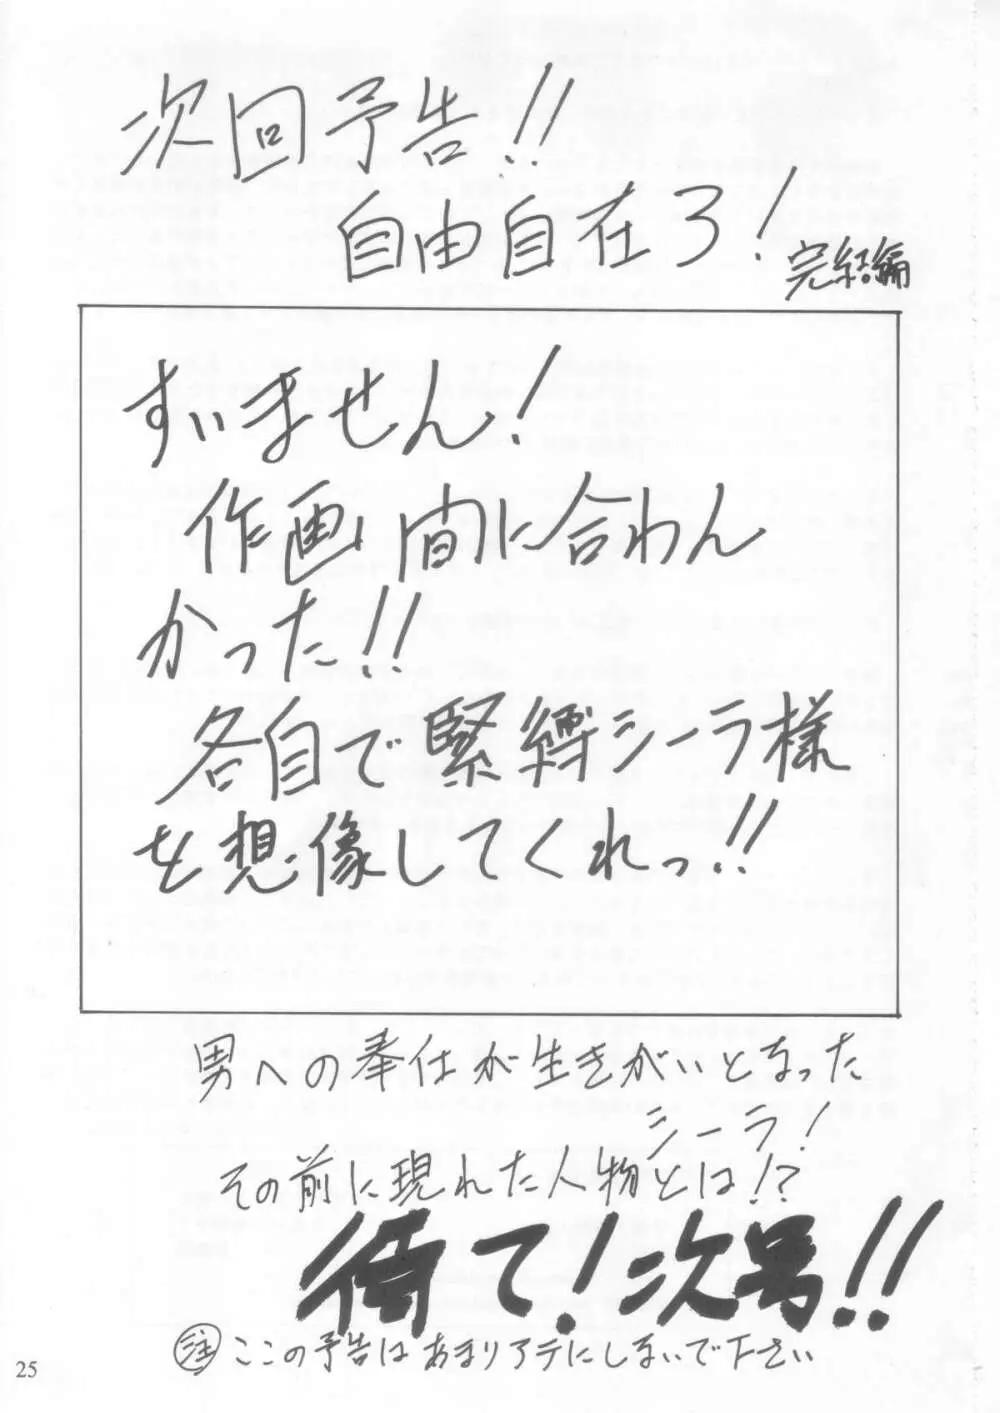 次回予告!!
自由自在3!
完結編
すいません!
作画間に合わん
かった!!
各自で緊縛シーラ様
を想像してくれっ!!
男への奉仕が生きがいとなった
シーラ!
その前に現れた人物とは!?
待て!次号!!
注 ここの予告はあまりアテにしないで下さい
25